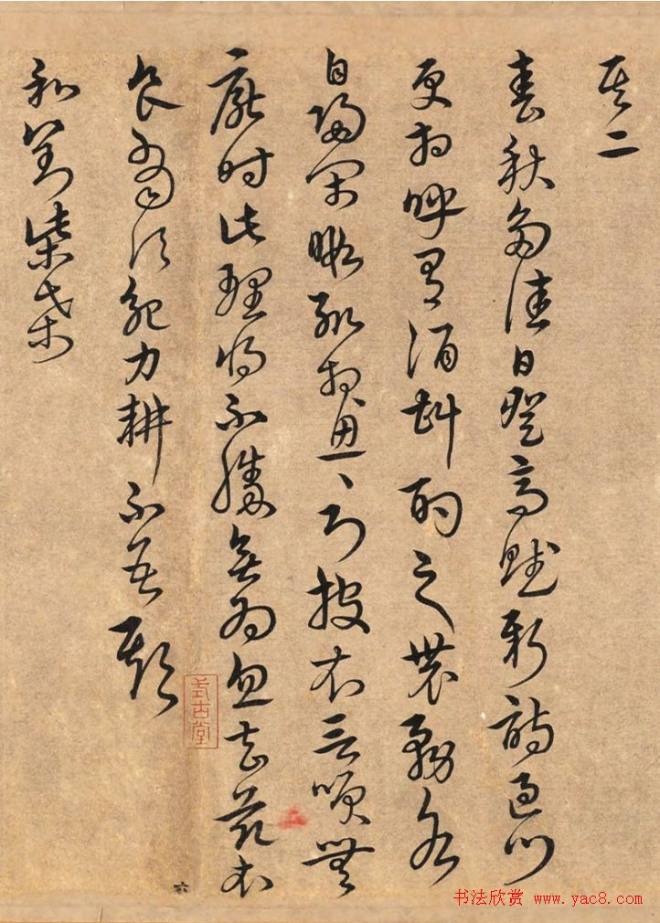 其二
春秋多佳日登高賦新詩過門
更相呼有酒斟酌之農務各
自歸閑暇輒相思〻則披衣言笑無
厭時此理将不勝無為忽去茲衣
食當須紀力耕不吾欺
和劉柴桑
式古堂
六
书法欣赏 www.yac8.com